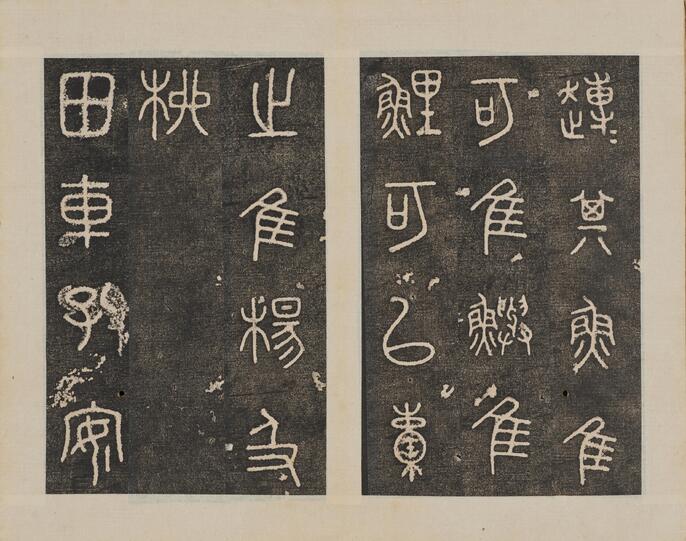 趍其魚隹
可隹鱮隹
鯉可㠯橐
之隹楊及
柳
田車孔安